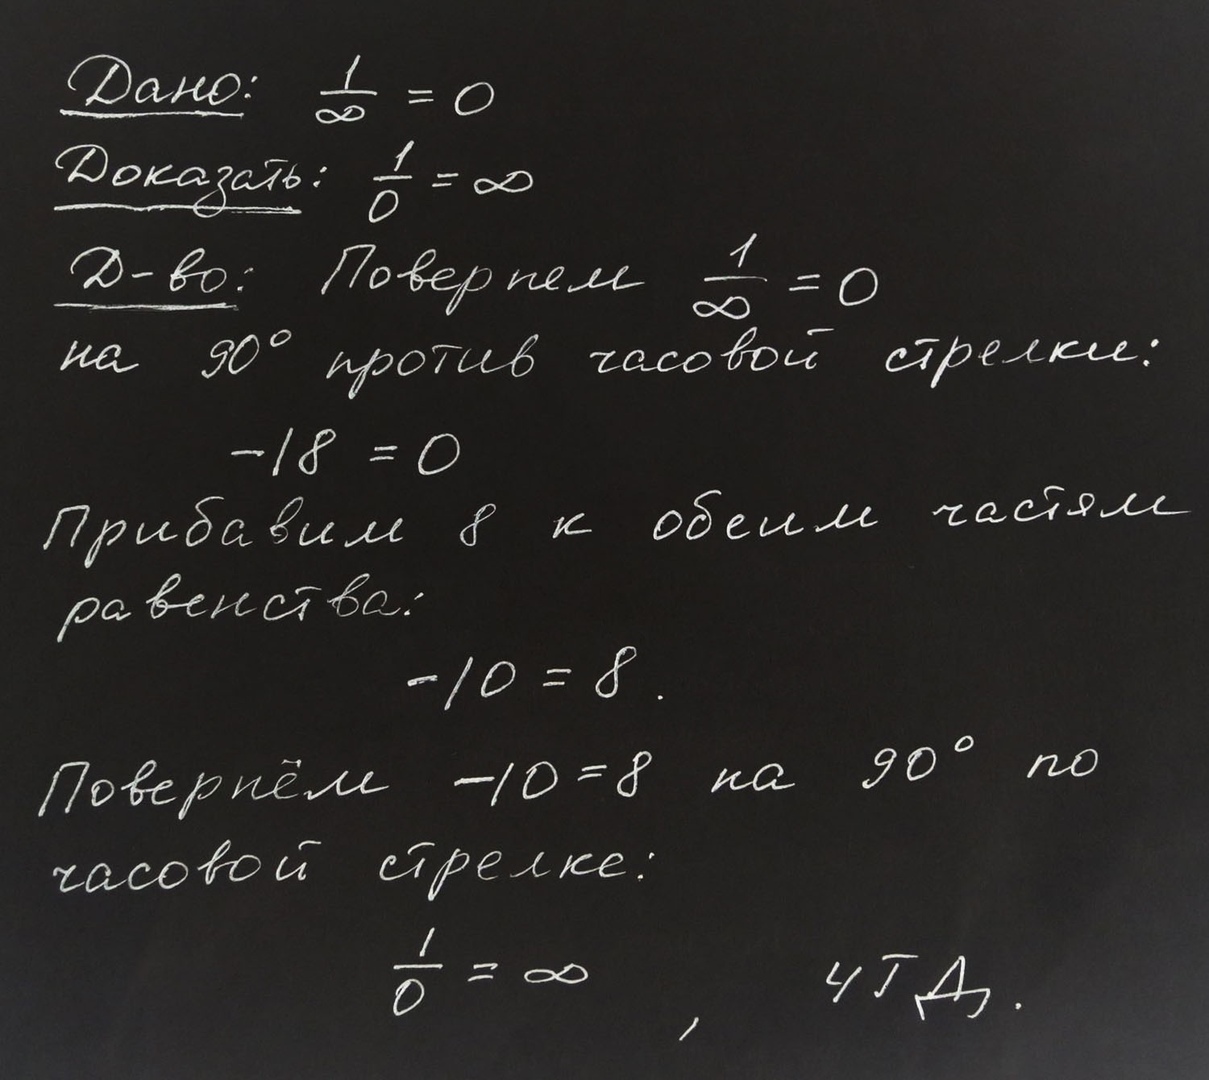 Дано: 1/∞ = 0
Доказать: 1/0 = ∞
Д-во: Повернем 1/∞ = 0
на 90° против часовой стрелки:
-18 = 0
Прибавим 8 к обеим частям
равенства:
-10 = 8.
Повернём -10=8 на 90° по
часовой стрелке:
1/0 = ∞, ЧТД.